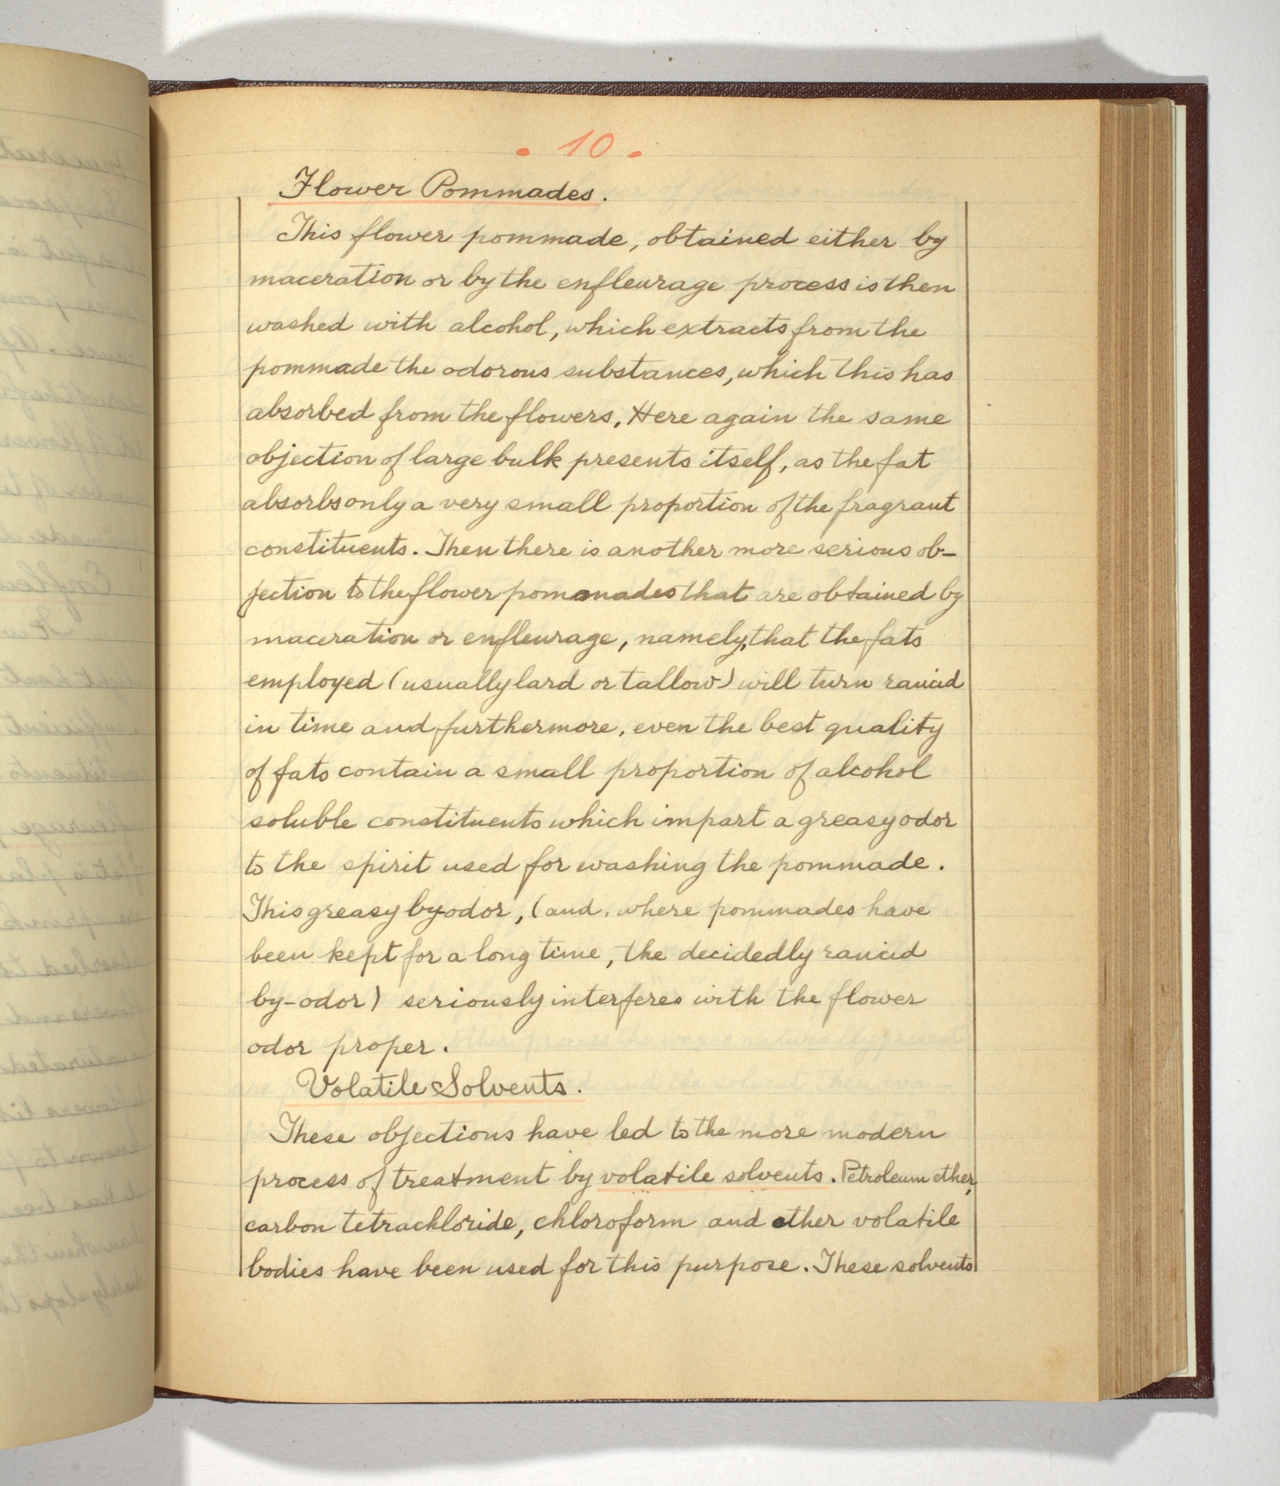 . 10 .
Flower Pommades.
This flower pommade, obtained either by
maceration or by the enfleurage process is then
washed with alcohol, which extracts from the
pommade the odorous substances, which this has
absorbed from the flowers. Here again the same
objection of large bulk presents itself, as the fat
absorbs only a very small proportion of the fragrant
constituents. Then there is another more serious ob-
jection to the flower pommades that are obtained by
maceration or enfleurage, namely, that the fats
employed (usually lard or tallow) will turn rancid
in time and furthermore, even the best quality
of fats contain a small proportion of alcohol
soluble constituents which impart a greasy odor
to the spirit used for washing the pommade.
This greasy by-odor, (and, where pommades have
been kept for a long time, the decidedly rancid
by-odor) seriously interferes with the flower
odor proper.
Volatile Solvents.
These objections have led to the more modern
process of treatment by volatile solvents. Petroleum ether,
carbon tetrachloride, chloroform and other volatile
bodies have been used for this purpose. These solvents